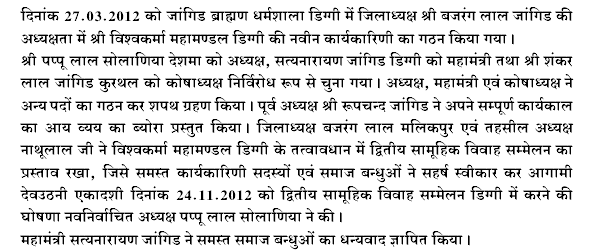 दिनांक 27.03.2012 को जांगिड ब्राह्मण धर्मशाला डिग्गी में जिलाध्यक्ष श्री बजरंग लाल जांगिड की
अध्यक्षता में श्री विश्वकर्मा महामण्डल डिग्गी की नवीन कार्यकारिणी का गठन किया गया।
श्री पप्पू लाल सोलाणिया देशमा को अध्यक्ष, सत्यनारायण जांगिड डिग्गी को महामंत्री तथा श्री शंकर
लाल जांगिड कुरथल को कोषाध्यक्ष निर्विरोध रूप से चुना गया। अध्यक्ष, महामंत्री एवं कोषाध्यक्ष ने
अन्य पदों का गठन कर शपथ ग्रहण किया। पूर्व अध्यक्ष श्री रूपचन्द जांगिड ने अपने सम्पूर्ण कार्यकाल
का आय व्यय का ब्योरा प्रस्तुत किया। जिलाध्यक्ष बजरंग लाल मलिकपुर एवं तहसील अध्यक्ष
नाथूलाल जी ने विश्वकर्मा महामण्डल डिग्गी के तत्वावधान में द्वितीय सामूहिक विवाह सम्मेलन का
प्रस्ताव रखा, जिसे समस्त कार्यकारिणी सदस्यों एवं समाज बन्धुओं ने सहर्ष स्वीकार कर आगामी
देवउठनी एकादशी दिनांक 24.11.2012 को द्वितीय सामूहिक विवाह सम्मेलन डिग्गी में करने की
घोषणा नवनिर्वाचित अध्यक्ष पप्पू लाल सोलाणिया ने की।
महामंत्री सत्यनारायण जांगिड ने समस्त समाज बन्धुओं का धन्यवाद ज्ञापित किया।